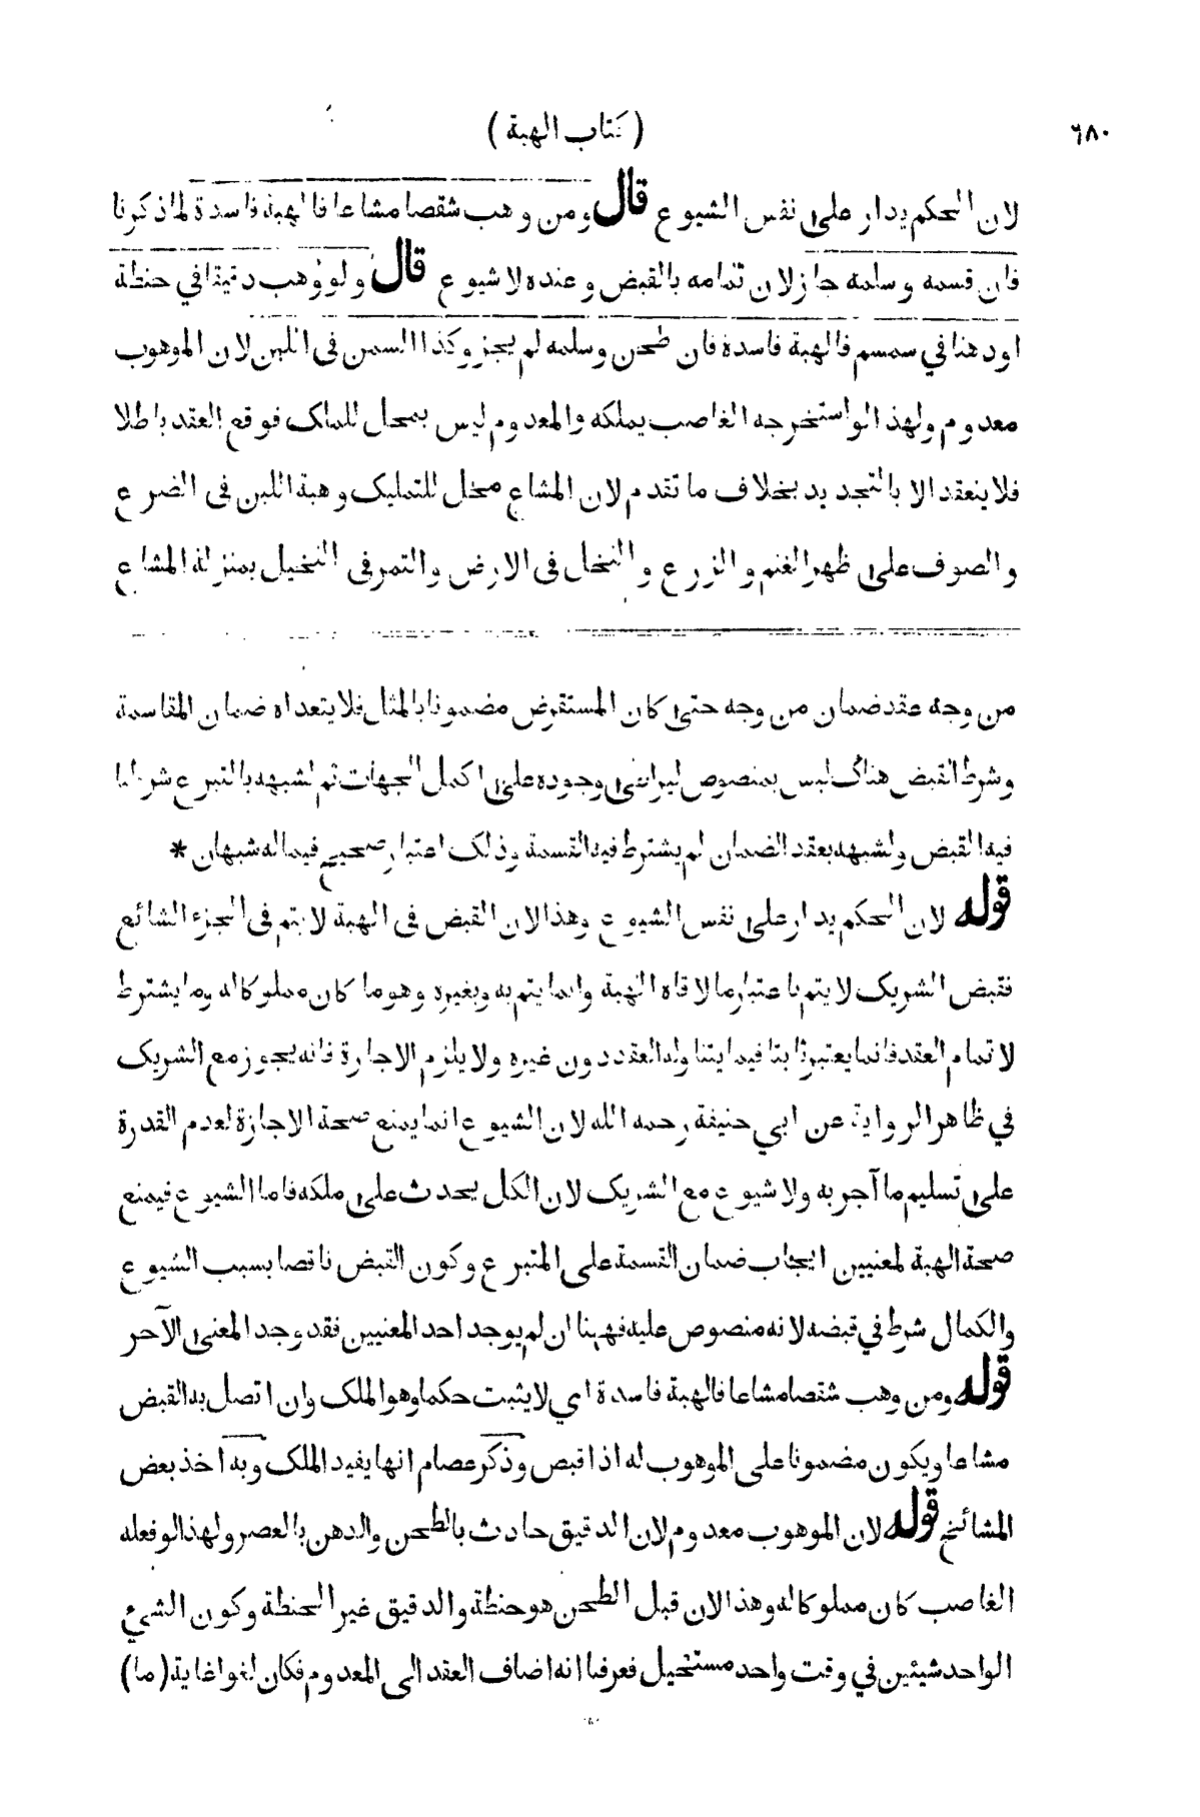 ٦٨٠
( كتاب الهبة )
لان الحكم يدار على نفس الشيوع قال ومن وهب شقصا مشاعا فالهبة فاسدة لماذكرنا
فان قسمه وسلمه جاز لان تمامه بالقبض وعنده لا شيوع قال ولووهب دقيقا في حنطة
اودهنا في سمسم فالهبة فاسدة فان طحن وسلمه لم يجز وكذا السمن فى اللبن لان الموهوب
معدوم ولهذا لو استخرجه الغاصب يملكه والمعدوم ليس بمحل للملك فوقع العقد باطلا
فلا ينعقد الا بالتجديد بخلاف ما تقدم لان المشاع محل للتمليك وهبة اللبن فى الضرع
والصوف على ظهر الغنم والزرع والنخل فى الارض والتمر فى النخيل بمنزلة المشاع
من وجه عقد ضمان من وجه حتى كان المستقرض مضمونا بالمثل فلا يتعداه ضمان المقاسمة
وشرط القبض هناك ليس بمنصوص ليراعى وجوده على اكمل الجهات ثم لشبهه بالتبرع شرطنا
فيه القبض ولشبهه بعقد الضمان لم يشترط فيه القسمة وذلك اعتبار صحيح فيما له شبهان *
قوله لان الحكم يدار على نفس الشيوع وهذا لان القبض فى الهبة لا يتم فى الجزء الشائع
فقبض الشريك لا يتم باعتبار ما لاقاه الهبة وانما يتم به وبغيره وهو ما كان مملوكا له وما يشترط
لا تمام العقد فانما يعتبر ثابتا فيما يتناوله العقد دون غيره ولا يلزم الاجارة فانه يجوز مع الشريك
في ظاهر الرواية عن ابي حنيفة رحمه الله لان الشيوع انما يمنع صحة الاجازة لعدم القدرة
على تسليم ما آجر به ولا شيوع مع الشريك لان الكل يحدث على ملكه فاما الشيوع فيمنع
صحة الهبة لمعنيين ايجاب ضمان القسمة على المتبرع وكون القبض ناقصا بسبب الشيوع
والكمال شرط في قبضه لانه منصوص عليه فههنا ان لم يوجد احد المعنيين فقد وجد المعنى الآخر
قوله ومن وهب شقصا مشاعا فالهبة فاسدة اي لا يثبت حكما وهو الملك وان اتصل به القبض
مشاعا ويكون مضمونا على الموهوب له اذا قبض وذكر عصام انها يفيد الملك وبه اخذ بعض
المشائخ قوله لان الموهوب معدوم لان الدقيق حادث بالطحن والدهن بالعصر ولهذا لو فعله
الغاصب كان مملوكا له وهذا لان قبل الطحن هو حنطة والدقيق غير الحنطة وكون الشيئ
الواحد شيئين في وقت واحد مستحيل فعرفنا انه اضاف العقد الى المعدوم فكان لغوا غاية ( ما )